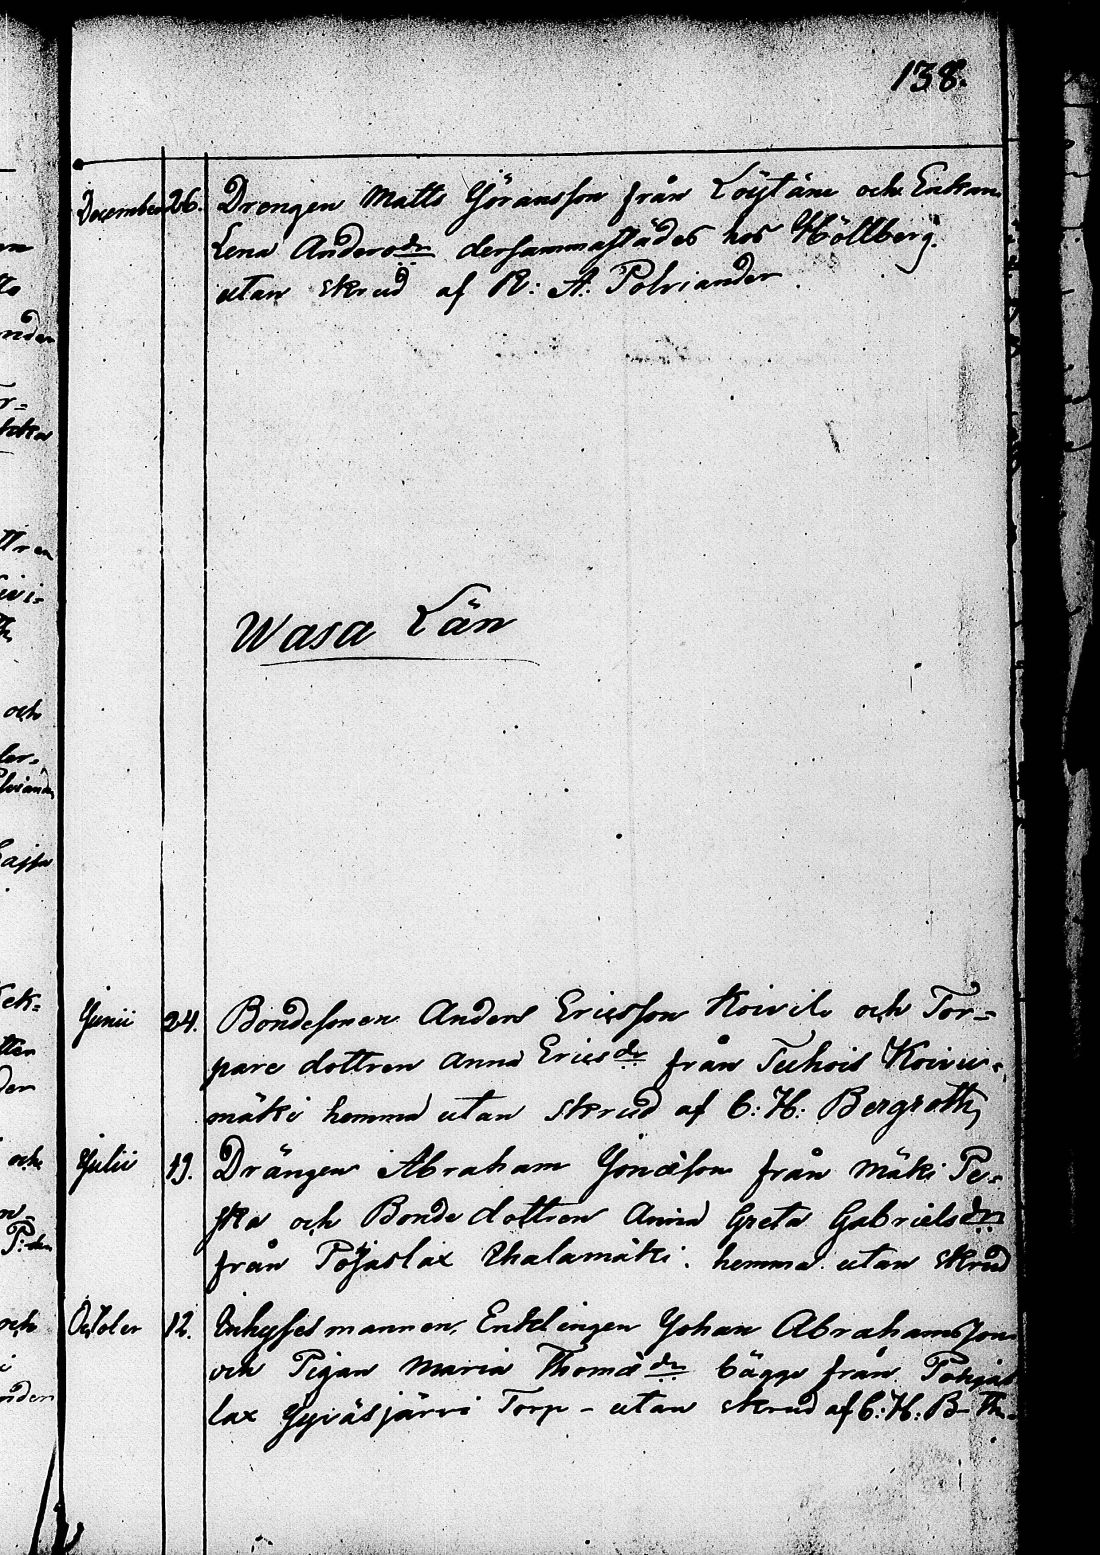 138.
December 26. Drengen Matts Göransson från Löytäne och Enkan
Lena Andersdr dersammastädes hos Höllberg.
utan skrud af R: A: Polviander
Wasa Län
Junii 24. Bondesonen Anders Ericsson Koivil och Tor=
pare dottren Anna Ericsdr från Tuhois Koivu=
mäki hemma utan skrud af C: H: Bergroth,
Julii 19. Drängen Abraham Jonæson från Mäki Pe=
ska och Bonde dottren Anna Greta Gabrielsdr
från Pojaslax Uhalamäki. hemma utan skrud
October 12. Inhysesmannen, Enklingen Johan Abrahamsson
och Pigan Maria Thomædr bägge från Pohjas
lax Jyväsjärvi Torp - utan skrud af C: H: B-th.